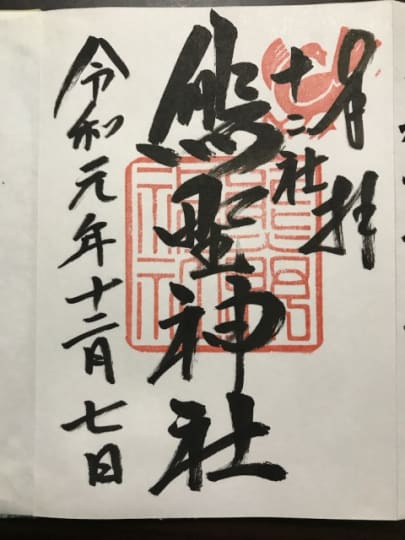 奉拝
十二社
熊野神社
令和元年十二月七日